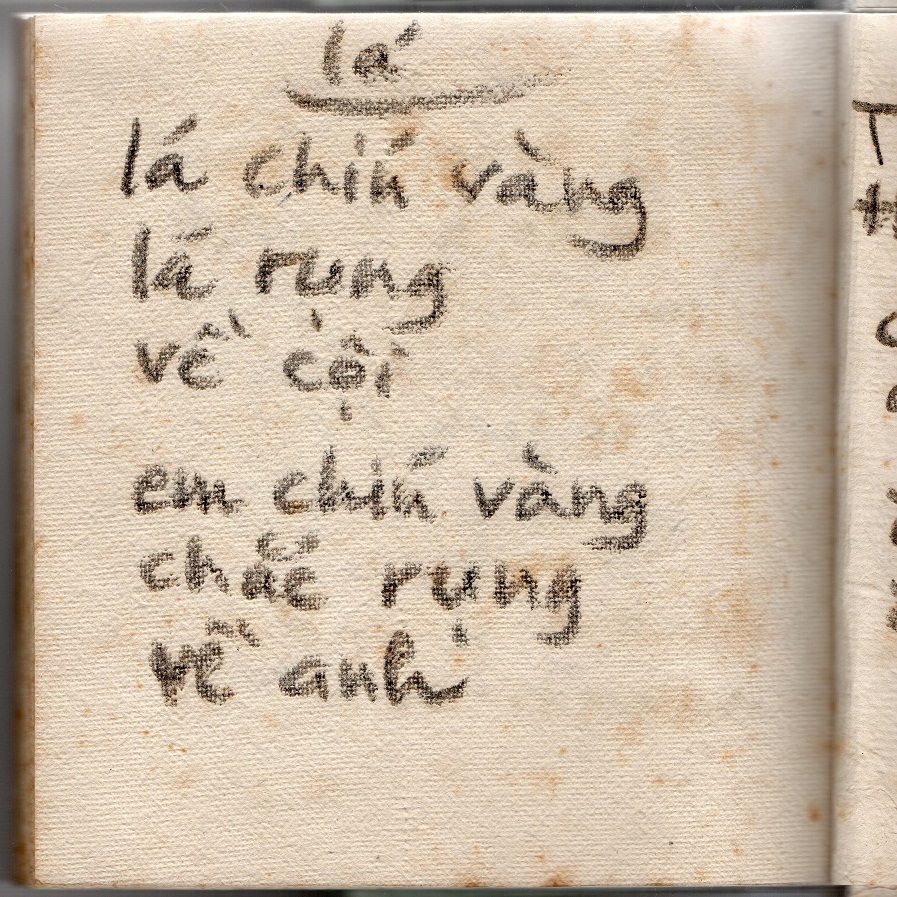 lá
lá chín vàng
lá rụng
về cội
em chín vàng
chắc rụng
về anh